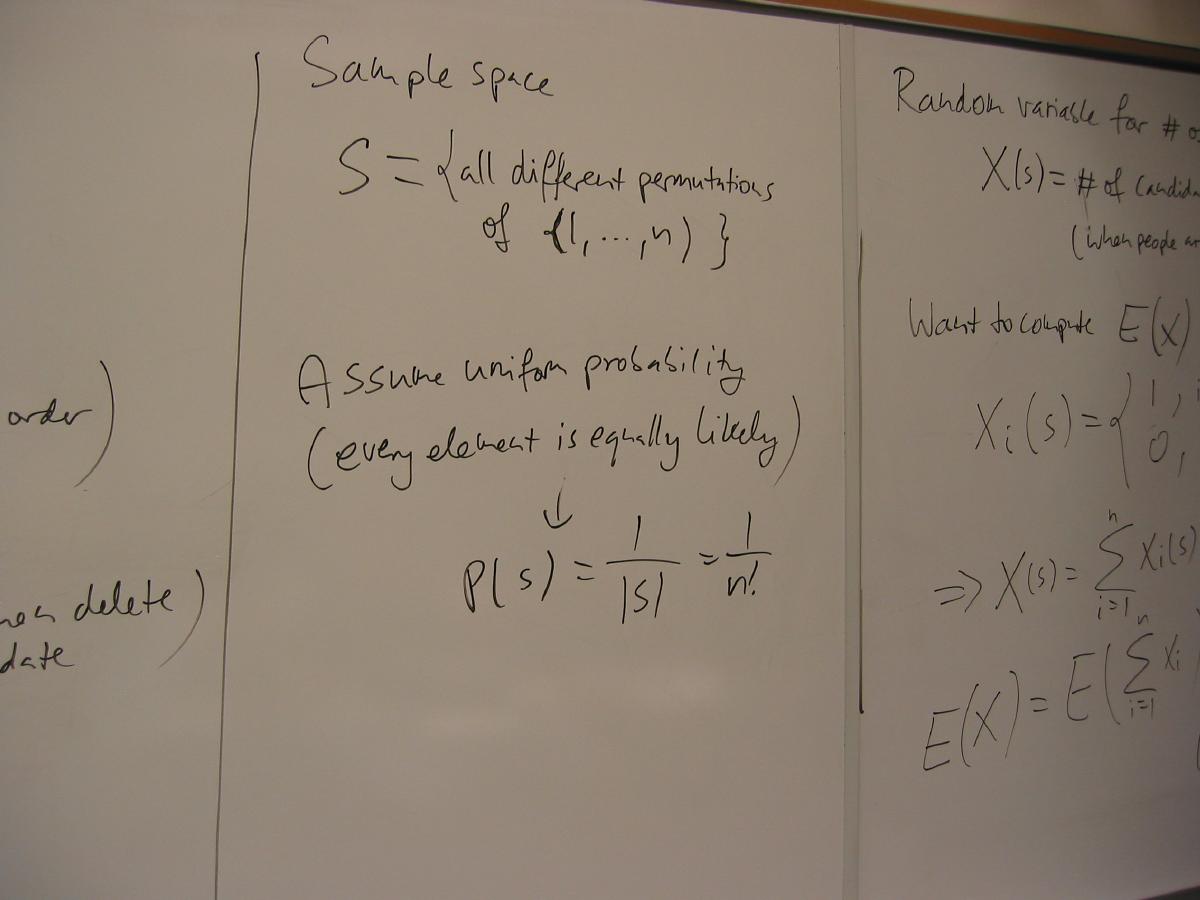 order)
delete)
date
Sample space
S = {all different permutations
of {1, ..., n) }
Assume uniform probability
(every element is equally likely)
↓
P(s) = 1/|S| = 1/n!
Random variable for #
X(s) = # of
(when people
Want to compute E(X)
Xi(s) = { 1,
0,
⇒ X(s) = ∑ i=1 n Xi(s)
E(X) = E( ∑ i=1 n Xi